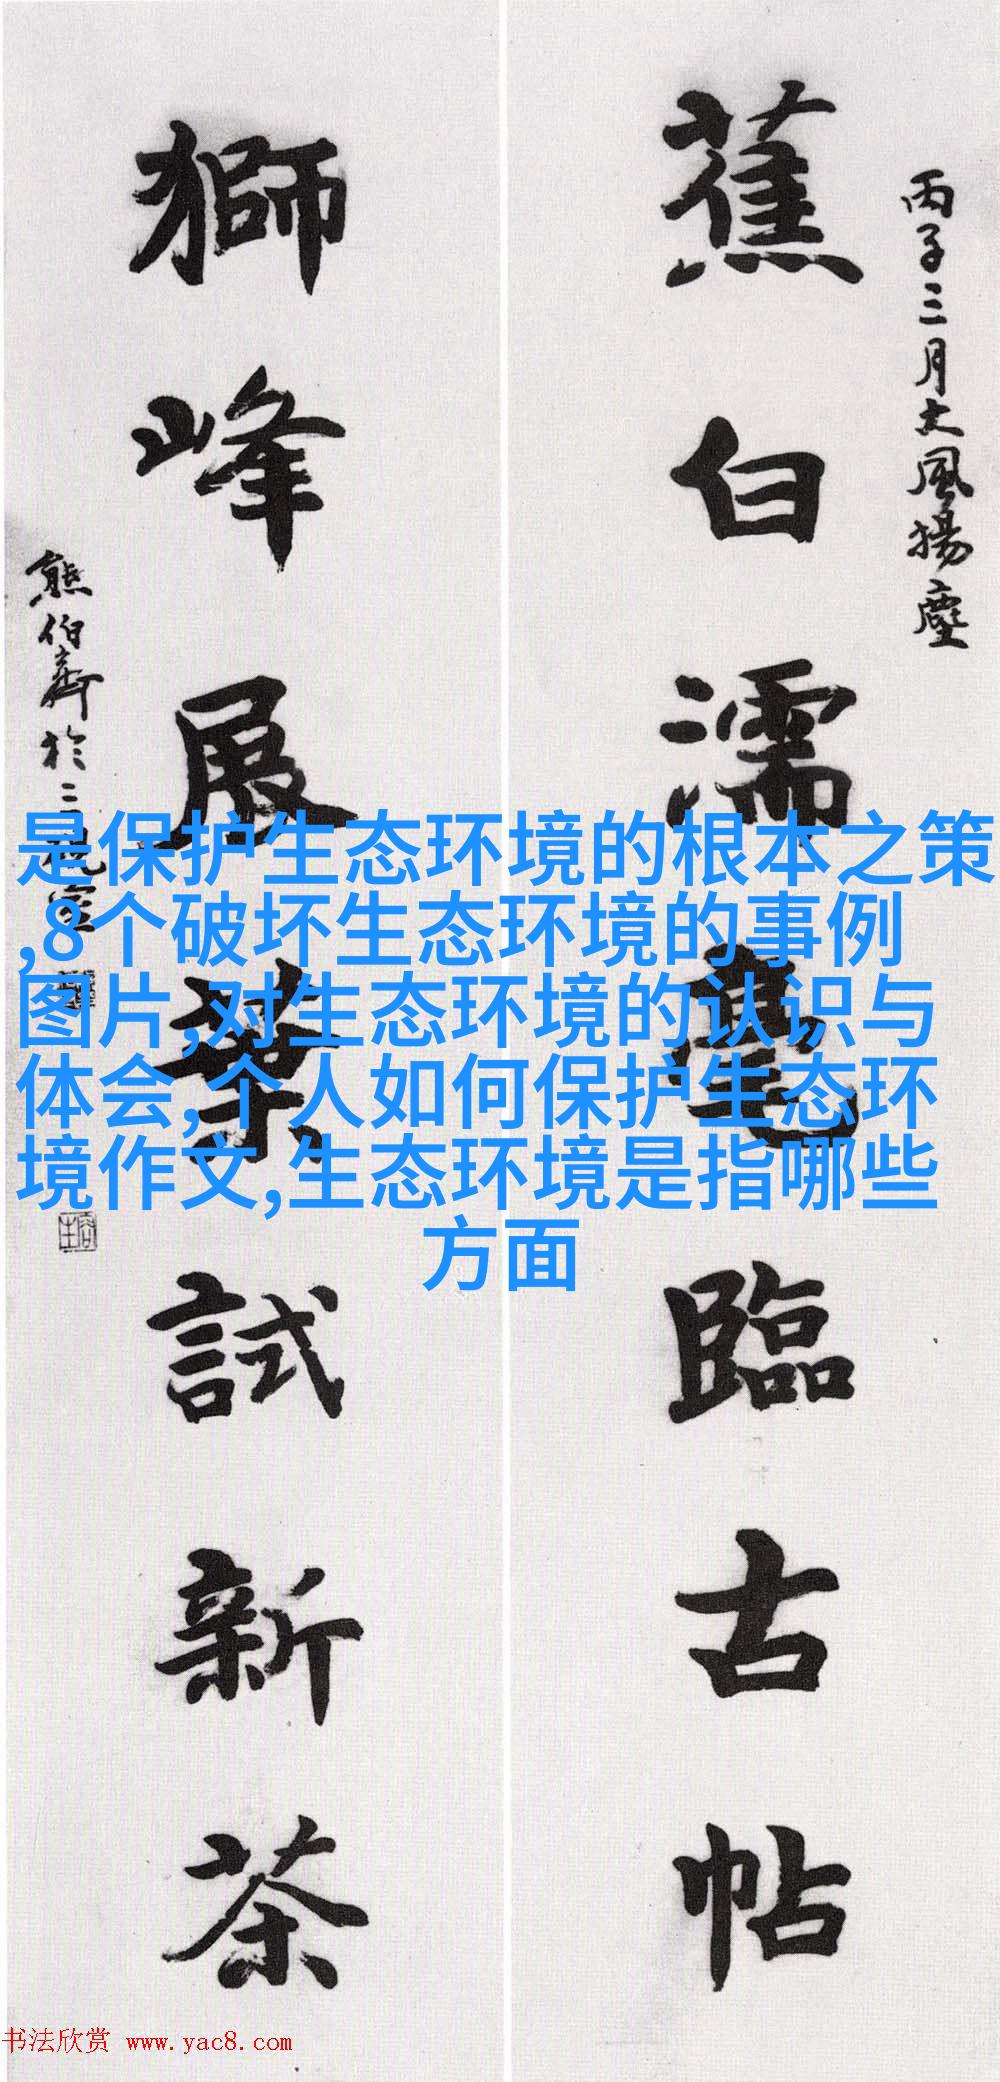 丙子三月大風揚塵
蕉白濡毫臨古帖
獅峰展葉試新茶
熊伯齊於二祝室
是保护生态环境的根本之策
,8个破坏生态环境的事例
图片,对生态环境的认识与
体会,个人如何保护生态环
境作文,生态环境是指哪些
方面
书法欣赏 www.yac8.com